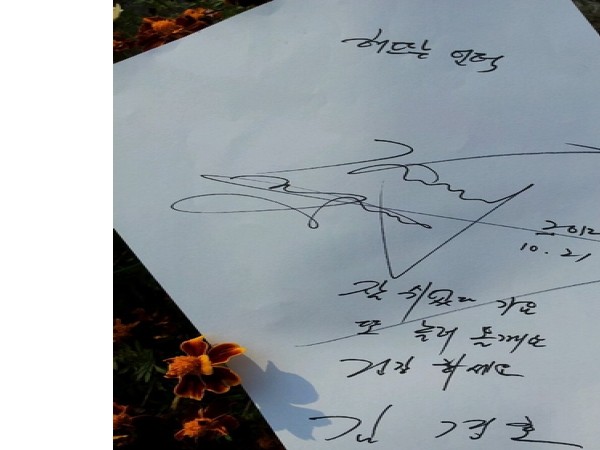 해뜨는 언덕
2012
10. 21
잘 쉬었다 가요
또 놀러 올께요
건강 하세요
김 경호